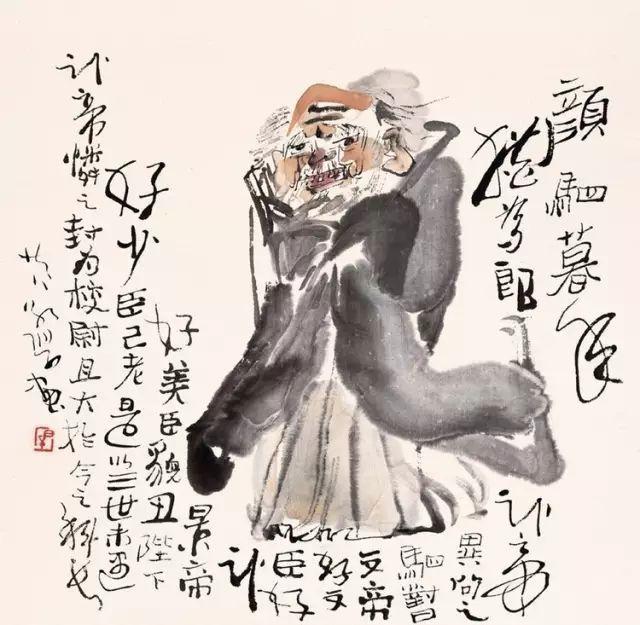 顏駟暮年
猶為郎
武帝
異問之
駟對
文帝
好文
臣好
武
景帝
好美臣貌丑陛下
好少
臣已老是以三世未遇
武帝憐之封为校尉且大於今之